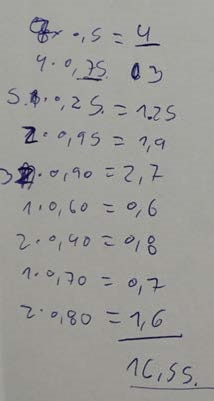 8· 0,5 = 4
4 · 0,75. 3
5 · 0,25. = 1.25
2 · 0,95 = 1,9
3 · 0,90 = 2,7
1 · 0,60 = 0,6
2 · 0,40 = 0,8
1 · 0,70 = 0,7
2 · 0,80 = 1,6
16,55.